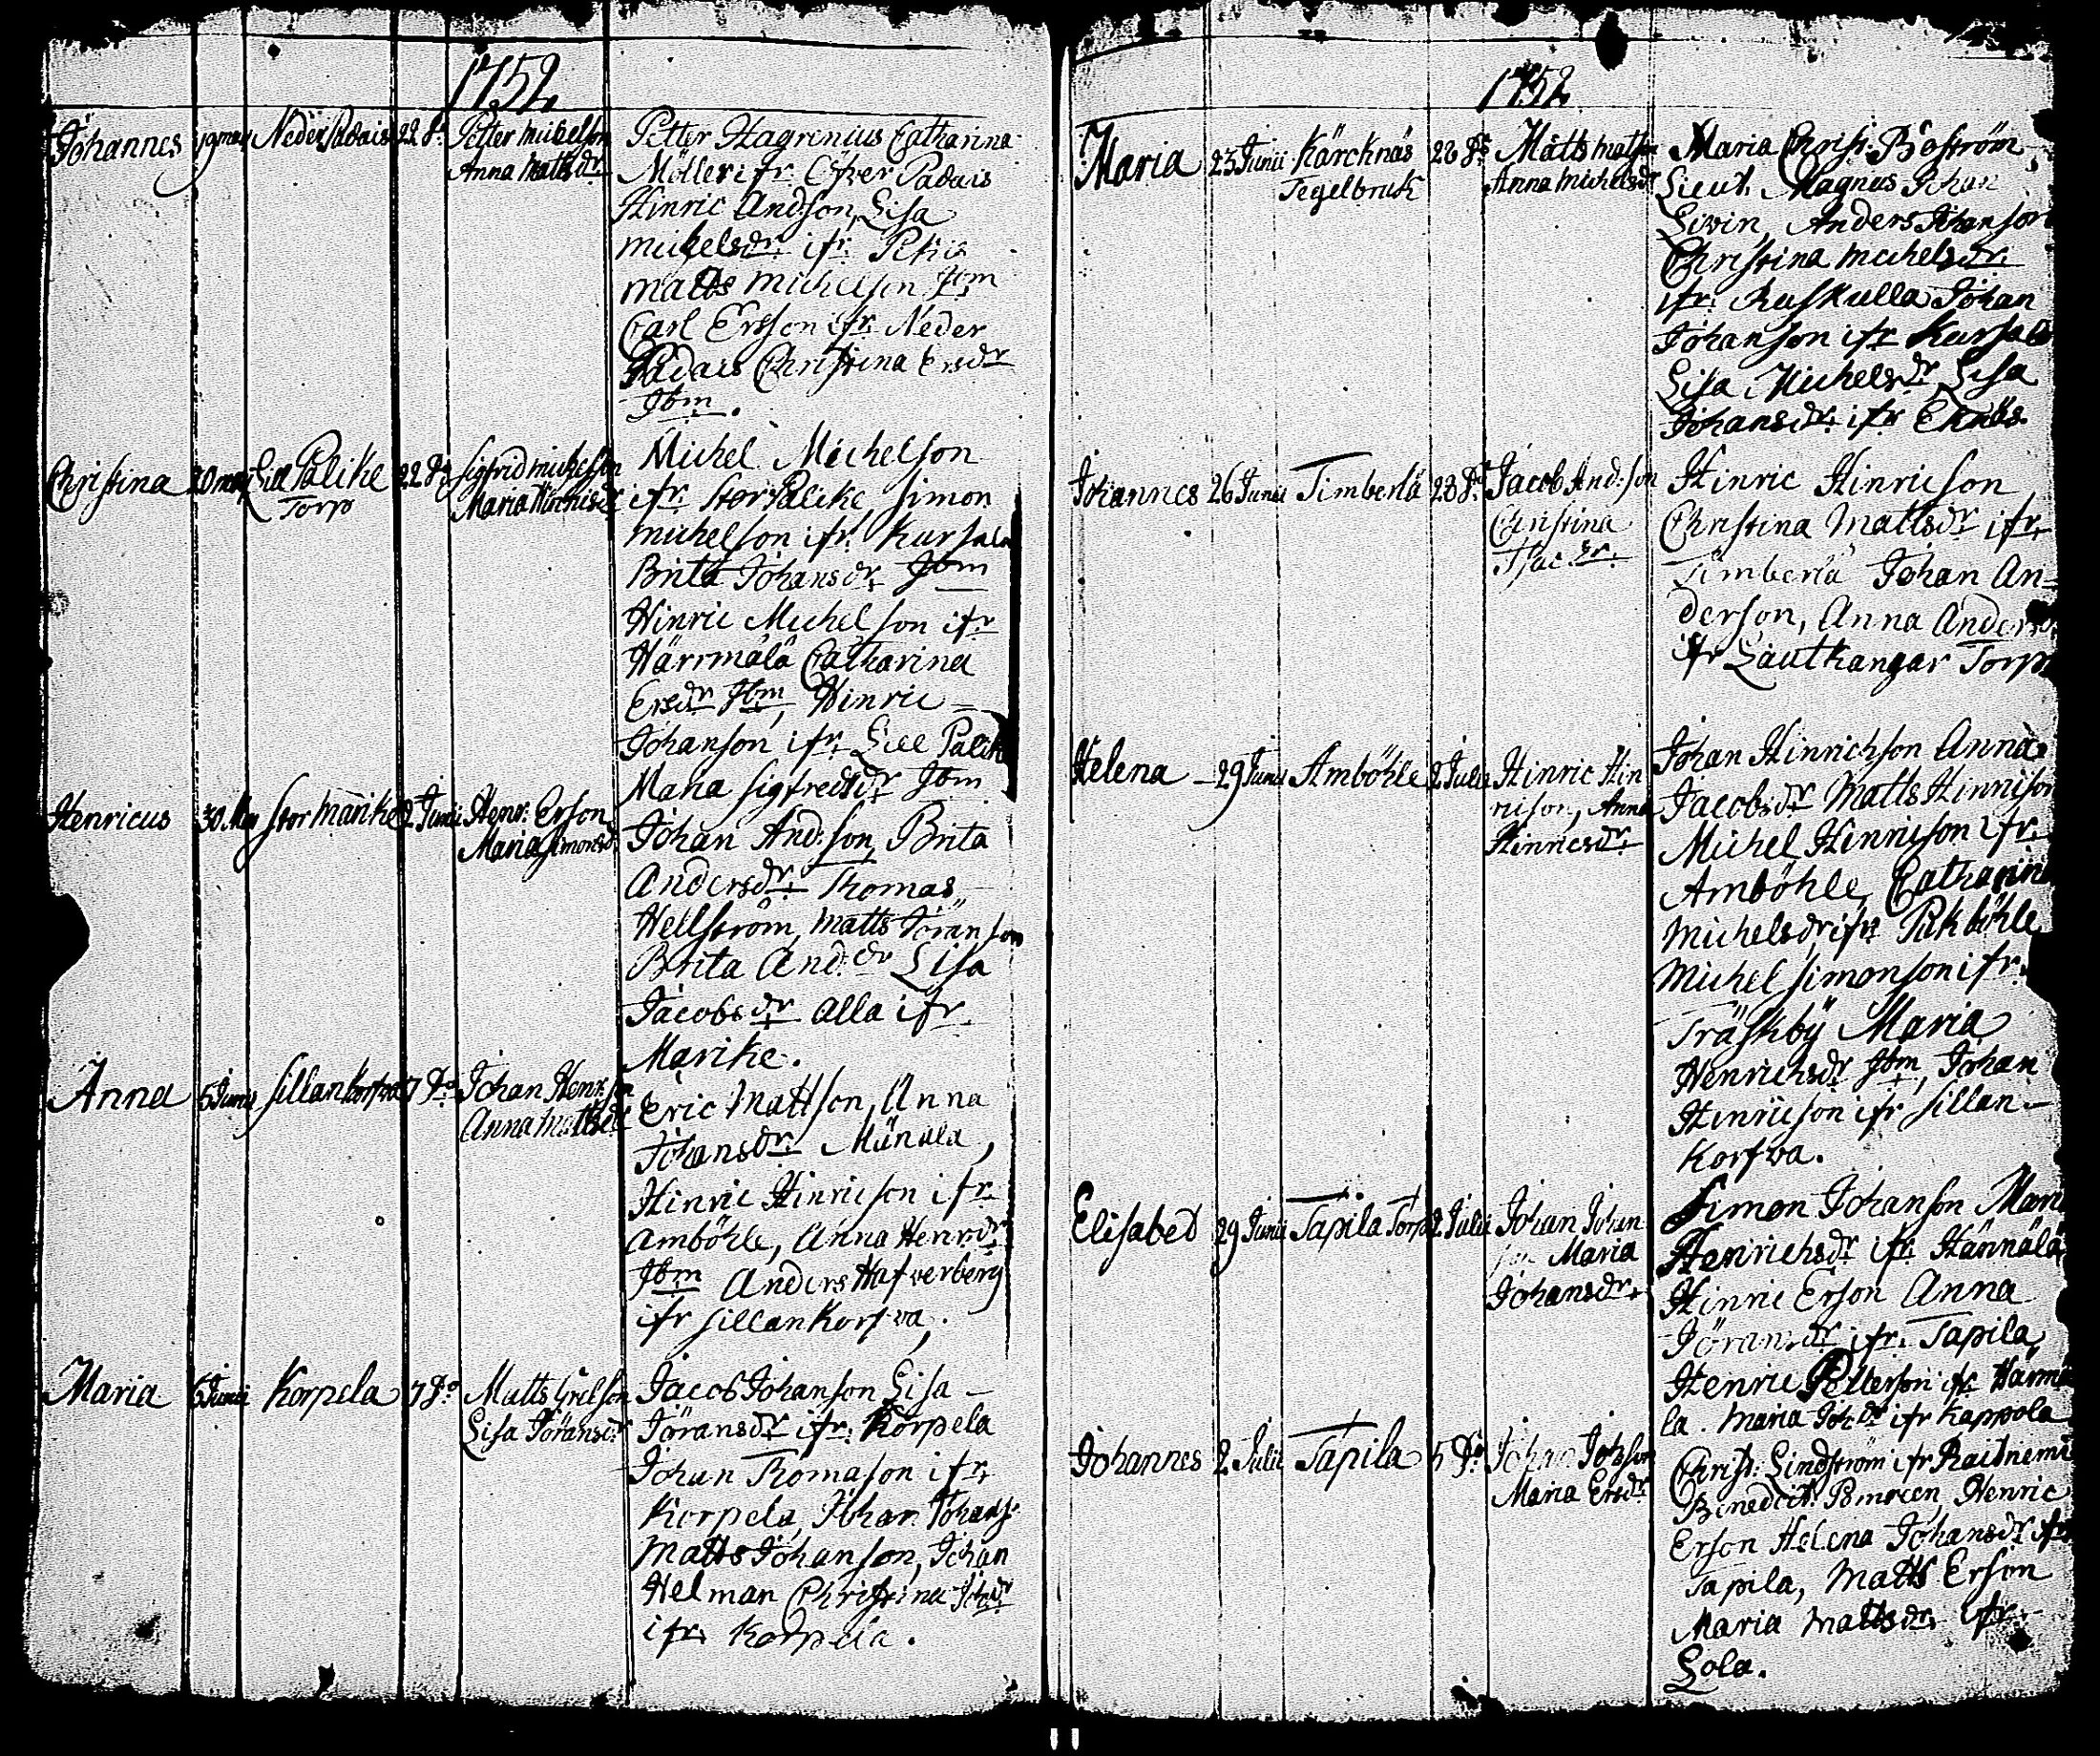 1752
Johannes 19 may Neder Padais 22 Do Petter Michelson Petter Hagrenius Catharina
Anna Mattsdr Möller ifr Öfver Padais
Hinric Andson, Lisa
Michelsdr ifr
Matts Michelson Ibm
Carl Ersson ifr Neder
Padais Christina Ersdr
Ibm.
Christina 20 may Lill Palike 22 Do Sigfrid Michelson Michel Michelson
Torp Maria ifr Stor Palike Simon
Michelson ifr Kursala
Brita Johansdr Ibm
Hinric Michelson ifr
Härrmälä Catharina
Ersdr Ibm, Hinric
Johanson ifr Lill Palike
Maria Sigfredsdr Ibm
Henricus 30 May Stor Marike 2 Junii Henr: Erson Johan And:son, Brita
Maria Simonsdr Andersdr Thomas
Hellström, Matts Jöranson
Brita And:dr Lisa
Jacobsdr alla ifr
Marike.
Anna 5 Junii Sillankorfva 7 Do Johan Henr:son Eric Mattson, Anna
Anna Mattsdr Johansdr
Hinric Hinricson ifr
Amböhle, Anna Henrsdr
Ibm Anders Hafverberg
ifr Sillankorfva.
Maria 6 Junii Korpela 7 Do Matts Grelson Jacob Johanson Lisa
Lisa Jöransdr Jöransdr ifr Korpela
Johan Thomason ifr
Korpela, Johan Johans:
Matts Johanson, Johan
Helman Christina Johdr
ifr Korpela.
1752
Maria 23 Junii Kärcknäs 28 Do Matts Matson Maria Christ: Boström
Tegelbruk Anna Michelsdr Lieut. Magnus Johan
Anders Johanson
Christina Michelsdr
ifr Ruskulla Johan
Johanson ifr Kursala
Lisa Michelsdr Lisa
Johansdr ifr
Johannes 26 Junii Timberlä 28 Do Jacob And:son Hinric Hinricson
Christina Christina Mattsdr ifr
Isac:dr Timberlä Johan An-
derson, Anna Anders
ifr Lautkangar Torp
Helena 29 Junii Amböhle 2 Julii Hinric Hin Johan Hinrichson Anna
ricson, Anna Jacobsdr Matts Hinricson
Hinricsdr Michel Hinricson ifr
Amböhle, Catharina
Michelsdr ifr Pikböhle
Michel Simonson ifr
Träskby Maria
Henrichsdr Ibm, Johan
Hinricson ifr Sillan-
korfva.
Elisabed 29 Junii Tapila Torp 2 Julii Johan Johan Simon Johanson Maria
son Maria Henrichsdr ifr Hännälä
Johansdr Hinric Erson Anna
Jöransdr ifr Tapila,
Henric Petterson ifr Härmä
la. Maria Johdr ifr Kappola
Johannes 2 Julii Tapila 5 Do Johan Johson Christ: Lindström ifr Raitniemi
Maria Ersdr Benedict: Henric
Erson Helena Johansdr ifr
Tapila, Matts Erson
Maria Mattsdr ifr
Lola.